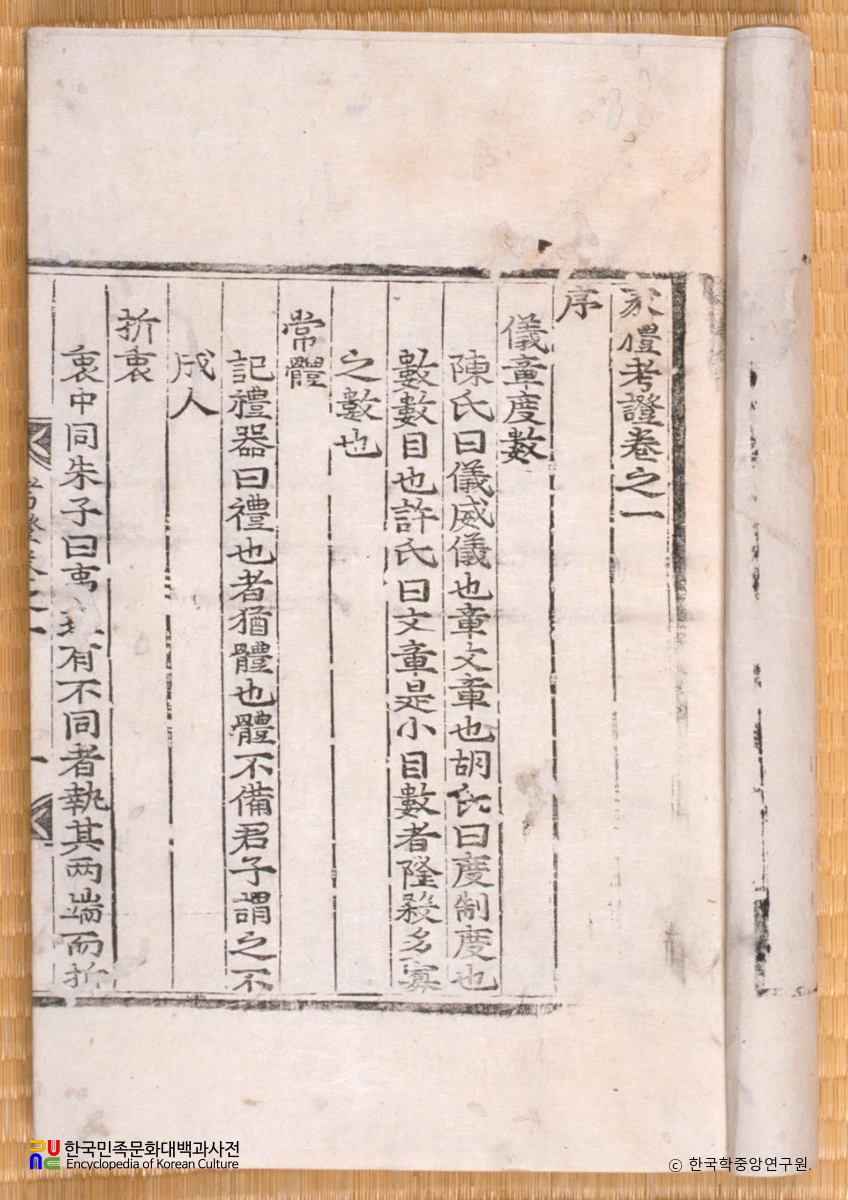 家禮考證卷之一
序
儀章度數
陳氏曰儀威儀也章文章也胡氏曰度制度也
數數目也許氏曰文章是小目數者隆殺多寡
之數也
常體
記禮器曰禮也者猶體也體不備君子謂之不
成人
折衷
衷中同朱子曰 有不同者執其两端而折
한국민족문화대백과사전
Encyclopedia of Korean Culture
© 한국학중앙연구원.